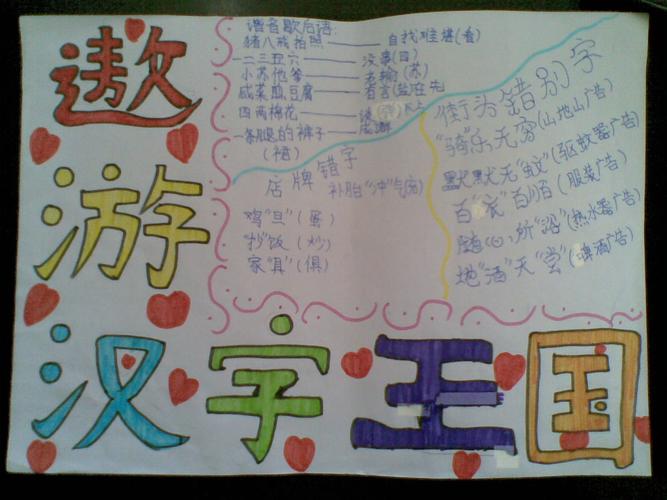 遨
游
汉字王国
谐音歇后语:
猪八戒拍照——自找难堪(看)
一二三五六——没事(四)
小苏他爹——老输(苏)
咸菜煎豆腐——有言(盐)在先
四两棉花——谈
一条腿的裤子——成
(裙)
店牌错字
补胎"冲"气(充)
鸡"旦"(蛋)
"抄"饭(炒)
家"具"(俱)
街头错别字
"骑"乐无穷(山地山广告)
默默无"蚊"(驱蚊器广告)
百"衣"百顺(服装广告)
随心所"浴"(热水器广告)
地"酒"天"堂"(啤酒广告)